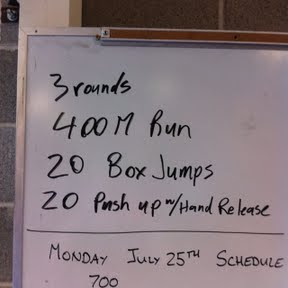 3 rounds
400 M Run
20 Box Jumps
20 Push up w/Hand Release
MONDAY JULY 25TH SCHEDULE
700